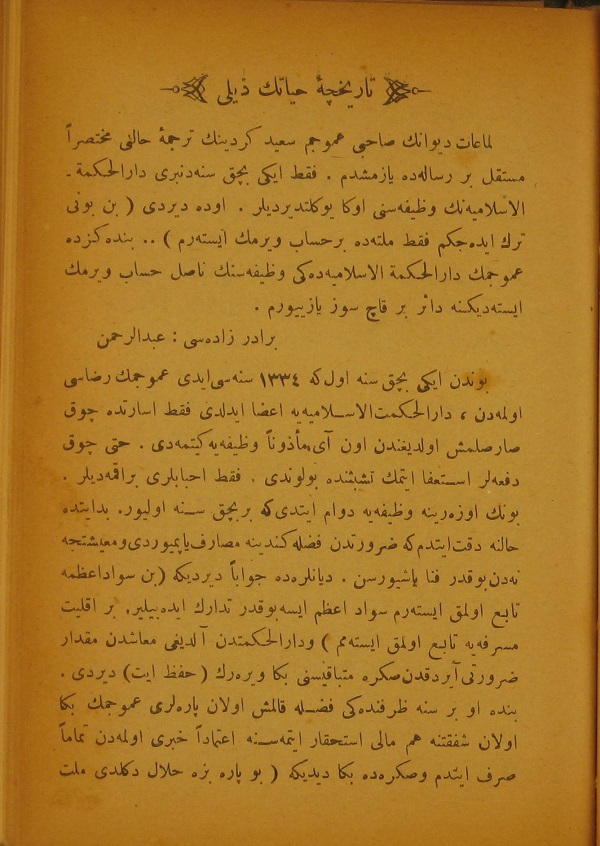 تاریخچۀ حیاتك ذیلی
لماعات دیوانك صاحبی عموجم سعید كردینك ترجمۀ حالنی مختصراً
مستقل بر رساله‌ده یازمشدم . فقط ایكی بچق سنه‌دنبری دارالحكمة ـ
الاسلامیه‌نك وظیفه‌سنی اوكا یوكلتدیردیلر . اوده دیردی ( بن بونی
ترك ایده‌جكم فقط ملته‌ده برحساب ویرمك ایسته‌رم ) .. بنده‌كزده
عموجمك دارالحكمة الاسلامیه‌ده‌كی وظیفه‌سنك ناصل حساب ویرمك
ایسته‌دیكنه دائر بر قاچ سوز یازییورم .
برادر زاده‌سی : عبدالرحمن
بوندن ایكی بچق سنه اول‌كه ١٣٣٤ سنه‌سی‌ایدی عموجمك رضاسی
اولمه‌دن ، دارالحكمت‌الاسلامیه‌یه اعضا ایدلدی فقط اسارتده چوق
صارصلمش اولدیغندن اون آی‌مأذوناً وظیفه‌یه‌كیتمه‌دی . حتی چوق
دفعه‌لر استعفا ایتمك تشبثنده بولوندی . فقط احبابلری براقمه‌دیلر .
بونك اوزه‌رینه وظیفه‌یه دوام ایتدی‌كه بربچق سنه اولیور. بدایتده
حالنه دقت‌ایتدم‌كه ضرورتدن فضله‌كندینه مصارف‌یاپمیوردی‌ومعیشتجه
نه‌دن‌بوقدر فنا یاشیورسن . دیانلره‌ده جواباً دیردیكه (بن سواداعظمه
تابع اولمق ایسته‌رم سواد اعظم ایسه‌بوقدر تدارك ایده‌بیلیر. بر اقلیت
مسرفه‌یه تابع اولمق ایسته‌مم ) ودارالحكمتدن آلدیغی معاشدن مقدار
ضرورتی‌آیردقدن‌صكره متباقیسنی بكا ویره‌رك ( حفظ ایت) دیردی .
بنده او بر سنه ظرفنده‌كی فضله قالمش اولان پاره‌لری عموجمك بكا
اولان شفقتنه هم مالی استحقار ایتمه‌سنه اعتماداً خبری اولمه‌دن تماماً
صرف ایتدم وصكره‌ده بكا دیدیكه ( بو پاره بزه حلال دكلدی ملت